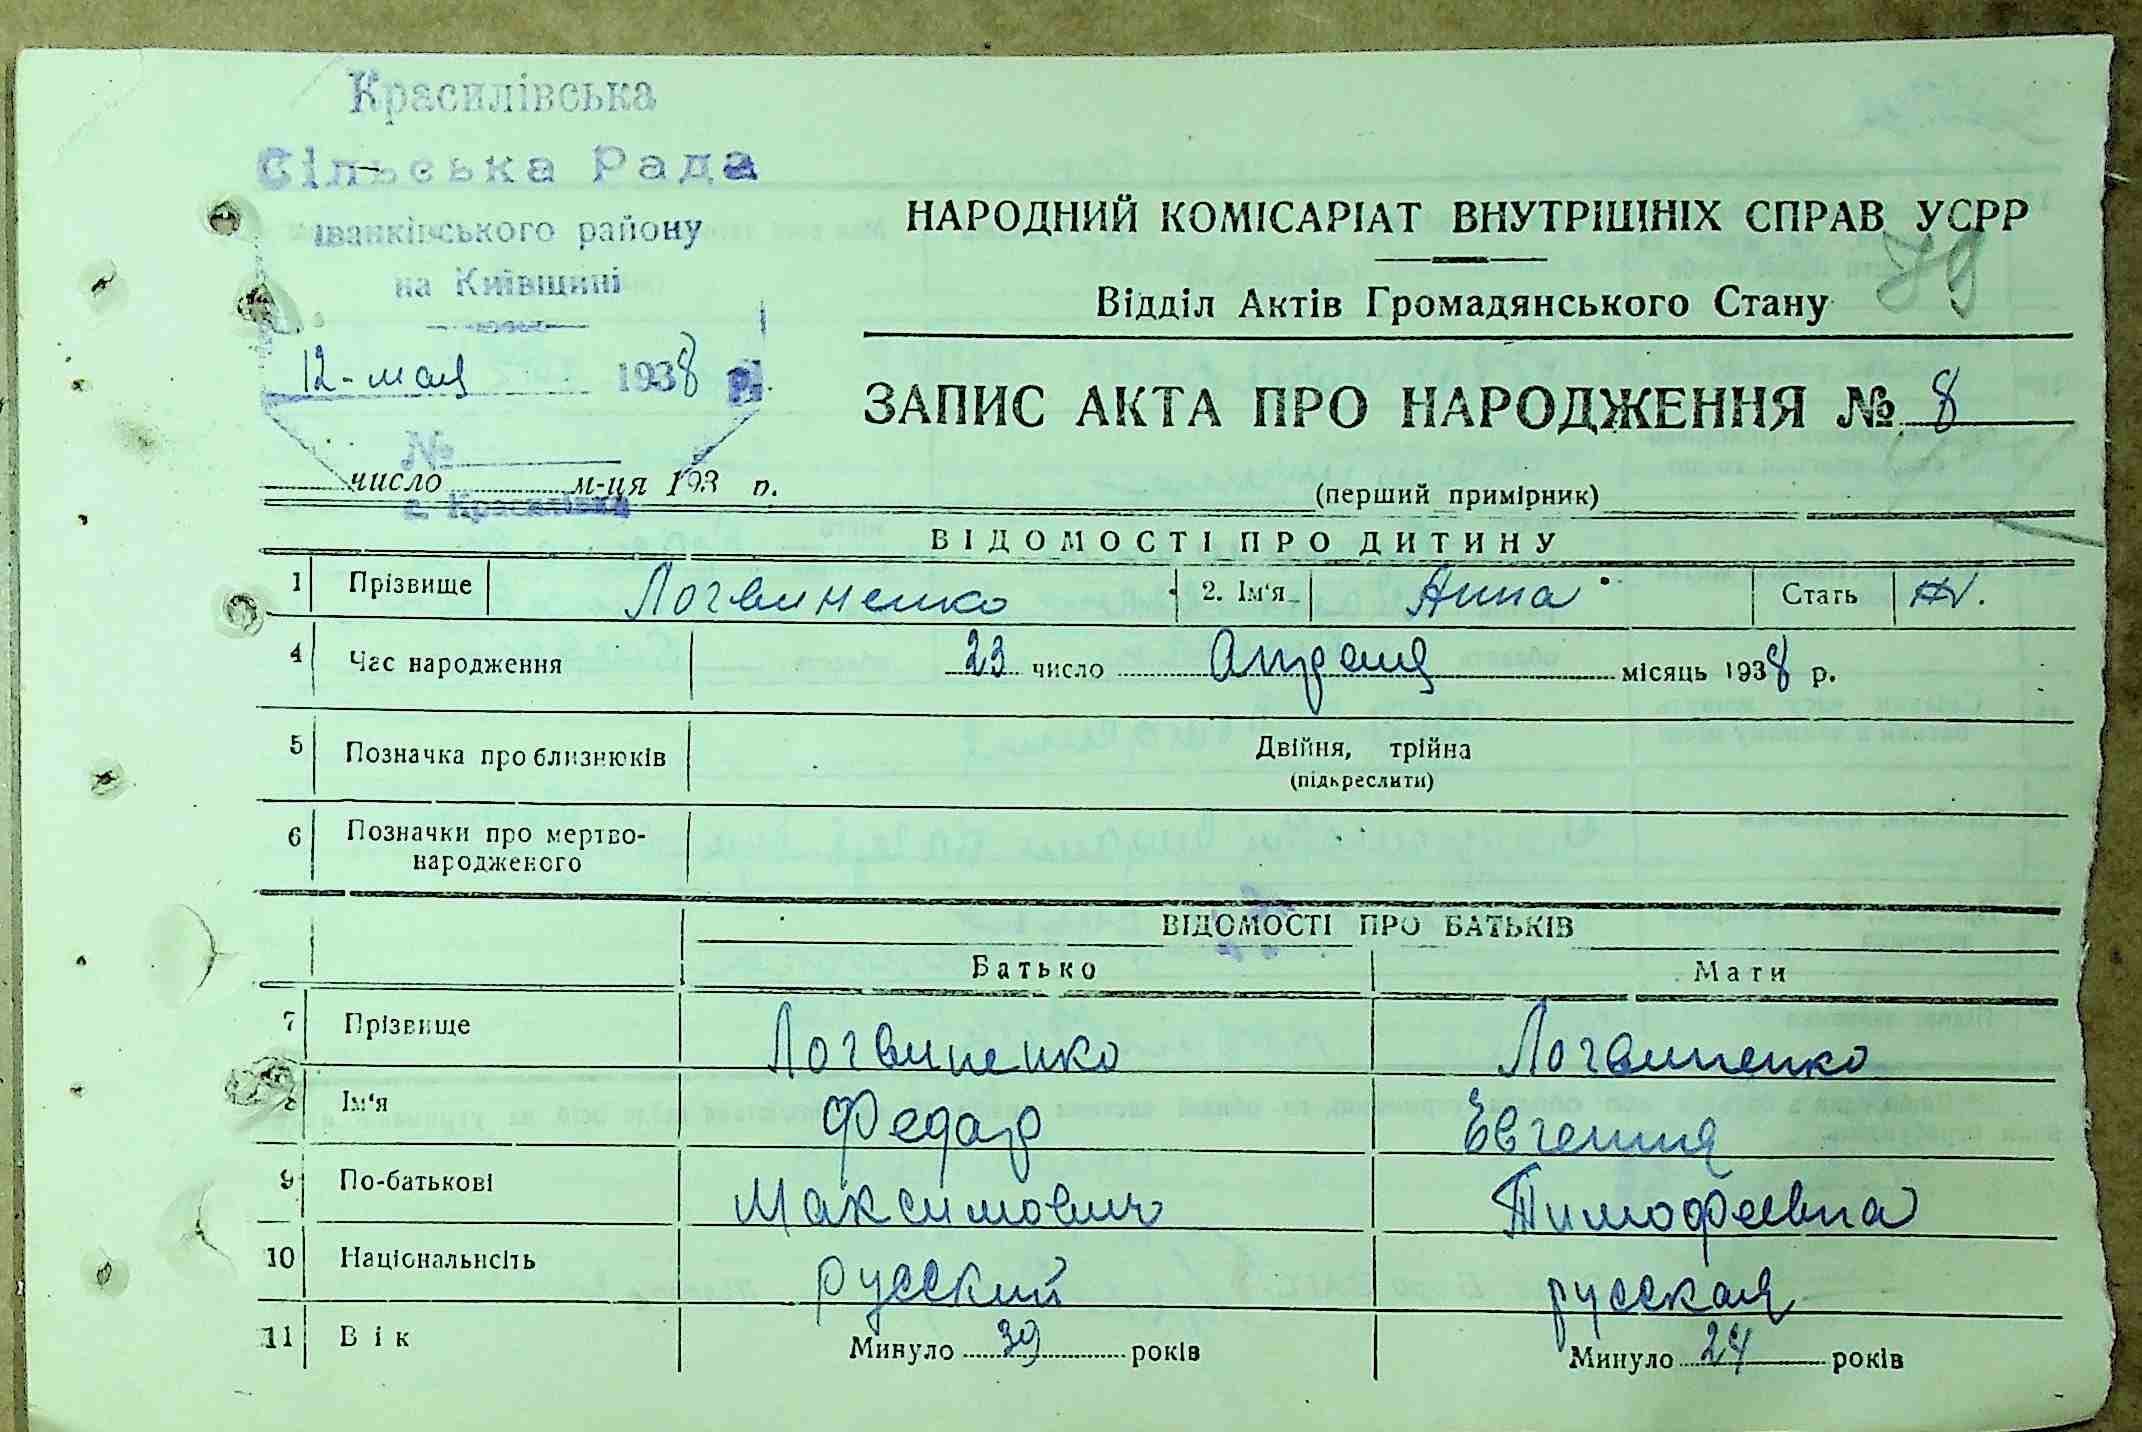 Красилівська
Сільська Рада
Іванківського району
на Київщині
12-мая 1938 р.
№
число м-ця 193 р.
с. Красилівка
НАРОДНИЙ КОМІСАРІАТ ВНУТРІШНІХ СПРАВ УСРР
79
Відділ Актів Громадянського Стану
ЗАПИС АКТА ПРО НАРОДЖЕННЯ № 8
(перший примірник)
ВІДОМОСТІ ПРО ДИТИНУ
1 Прізвище Логвиненко 2. Ім'я Анна Стать ж.
4 Час народження 23 число Апреля місяць 1938 р.
5 Позначка про близнюків Двійня, трійна
(підкреслити)
6 Позначки про мертво-
народженого
ВІДОМОСТІ ПРО БАТЬКІВ
Батько Мати
7 Прізвище Логвиненко Логвиненко
8 Ім'я Федор Евгения
9 По-батькові Максимович Тимофеевна
10 Національність русский русская
11 Вік Минуло 39 років Минуло 24 років